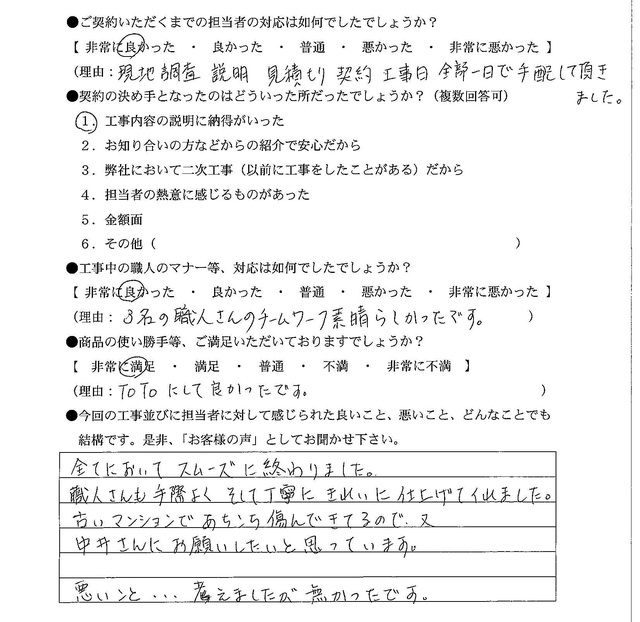 ●ご契約いただくまでの担当者の対応は如何でしたでしょうか？
【 非常に良かった ・ 良かった ・ 普通 ・ 悪かった ・ 非常に悪かった 】
（理由：現地調査 説明 見積もり 契約 工事日 全部一日で手配して頂き
ました。
●契約の決め手となったのはどういった所だったでしょうか？（複数回答可）
１．工事内容の説明に納得がいった
２．お知り合いの方などからの紹介で安心だから
３．弊社において二次工事（以前に工事をしたことがある）だから
４．担当者の熱意に感じるものがあった
５．金額面
６．その他（ ）
●工事中の職人のマナー等、対応は如何でしたでしょうか？
【 非常に良かった ・ 良かった ・ 普通 ・ 悪かった ・ 非常に悪かった 】
（理由：3名の職人さんのチームワーク素晴らしかったです。 ）
●商品の使い勝手等、ご満足いただいておりますでしょうか？
【 非常に満足 ・ 満足 ・ 普通 ・ 不満 ・ 非常に不満 】
（理由：TOTOにして良かったです。 ）
●今回の工事並びに担当者に対して感じられた良いこと、悪いこと、どんなことでも
結構です。是非、「お客様の声」としてお聞かせ下さい。
全てにおいて スムーズに終わりました。
職人さんも手際よく そして丁寧に きれいに仕上げて仏ました。
古いマンションで あちこち傷んできてるので、又
中井さんに お願いしたいと思っています。
悪いこと・・・考えましたが 無かったです。